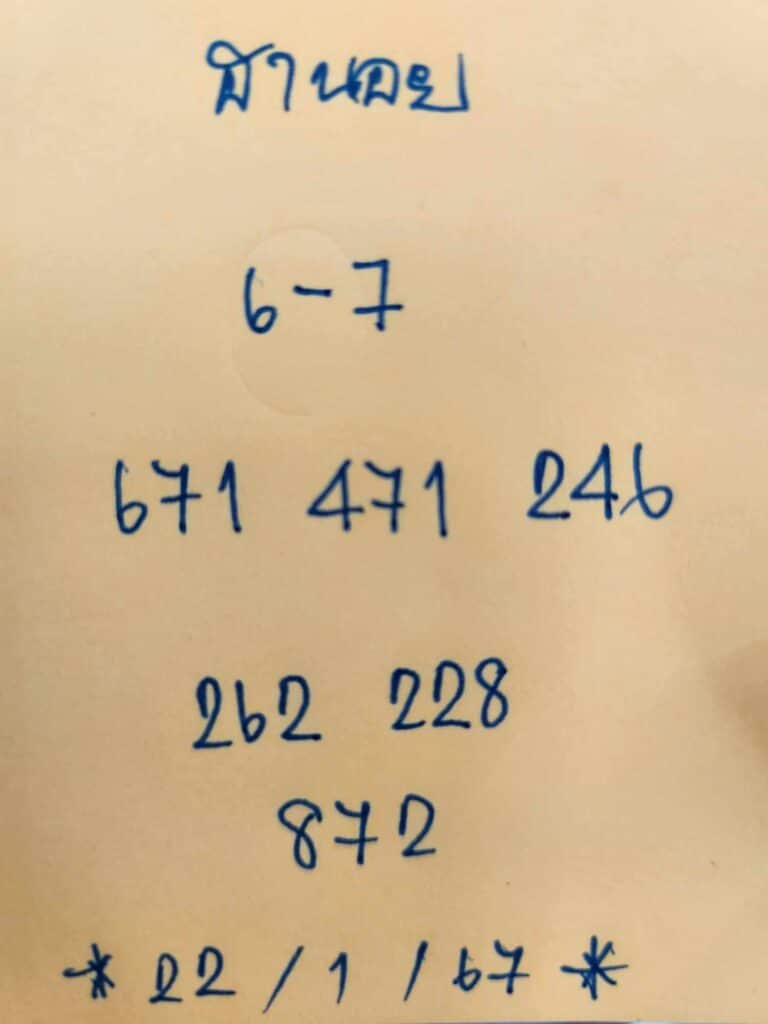 ฮานอย
6-7
671 471 246
262 228
872
* 22/1/67 *